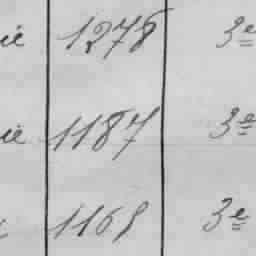 ié 1278 3e
ié 1187 3e
1168 3e